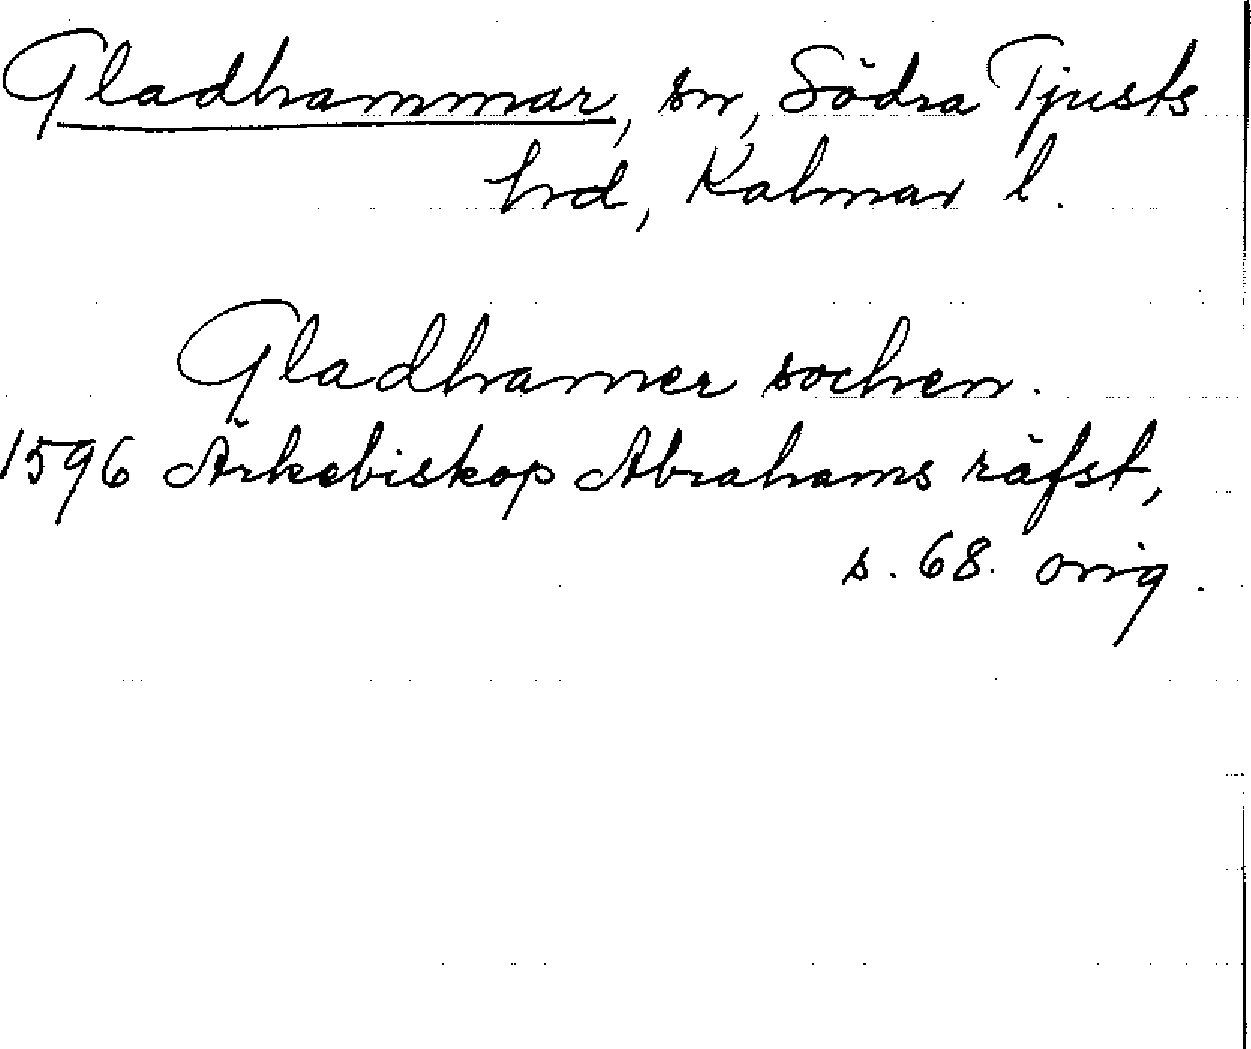 Gladhammar, sn, Södra Tjusts
hd, Kalmar l.
Gladhamer sochen.
1596 Ärkebiskop Abrahams räfst,
s. 68. orig.